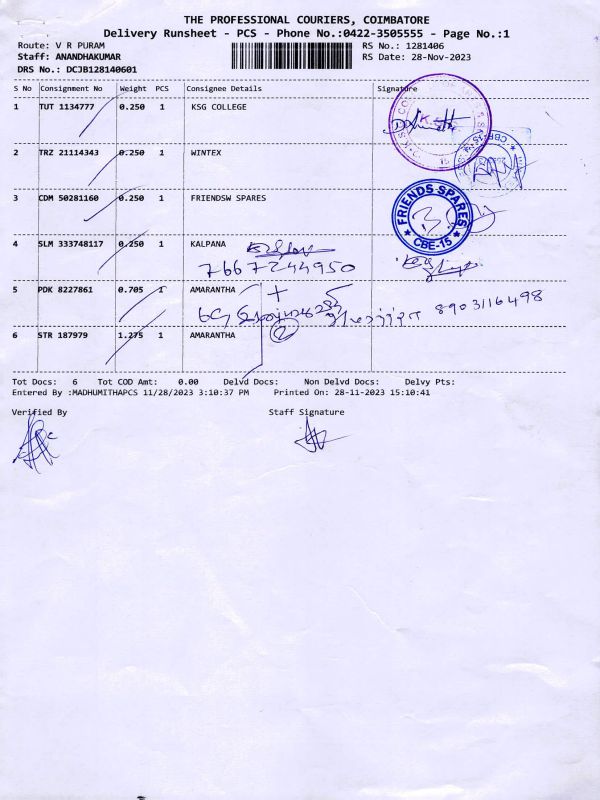 THE PROFESSIONAL COURIERS, COIMBATORE
Delivery Runsheet - PCS - Phone No.:0422-3505555 - Page No.:1
Route: V R PURAM RS No.: 1281406
Staff: ANANDHAKUMAR RS Date: 28-Nov-2023
DRS No.: DCJB128140601
S No Consignment No Weight PCS Consignee Details Signature
1 TUT 1134777 0.250 1 KSG COLLEGE
2 TRZ 21114343 0.250 1 WINTEX
3 CDM 50281160 0.250 1 FRIENDSW SPARES
FRIENDS SPARES
★ CBE-15 ★
4 SLM 333748117 0.250 1 KALPANA
7667244950
5 PDK 8227861 0.705 1 AMARANTHA
8903116498
6 STR 187979 1.275 1 AMARANTHA
2
Tot Docs: 6 Tot COD Amt: 0.00 Delvd Docs: Non Delvd Docs: Delvy Pts:
Entered By :MADHUMITHAPCS 11/28/2023 3:10:37 PM Printed On: 28-11-2023 15:10:41
Verified By Staff Signature